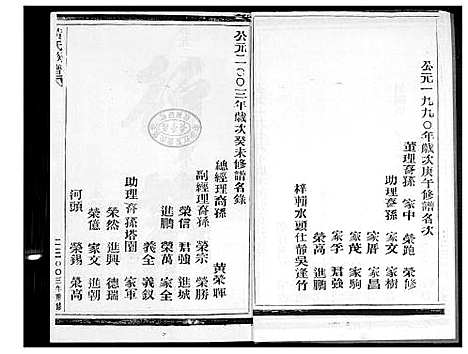 公元一九九〇年歲次庚午修譜名次
董理裔孫 家中 榮跑 榮修
助理裔孫 家文 家樹
家厝 家昌
家茂 家駒
家孚 君強
榮高 進鵬
梓輔水頭仕靜吳逢竹
公元二〇〇三年歲次癸未修譜名錄
總經理裔孫 黃榮暉
副經理裔孫 榮宗 榮勝
榮信 君強 進城
進鵬 榮萬 家全
義全 義釵
助理裔孫塔園 家軍
榮然 進興 德瑞
榮億 家文 進朝
河頭 榮錫 榮高